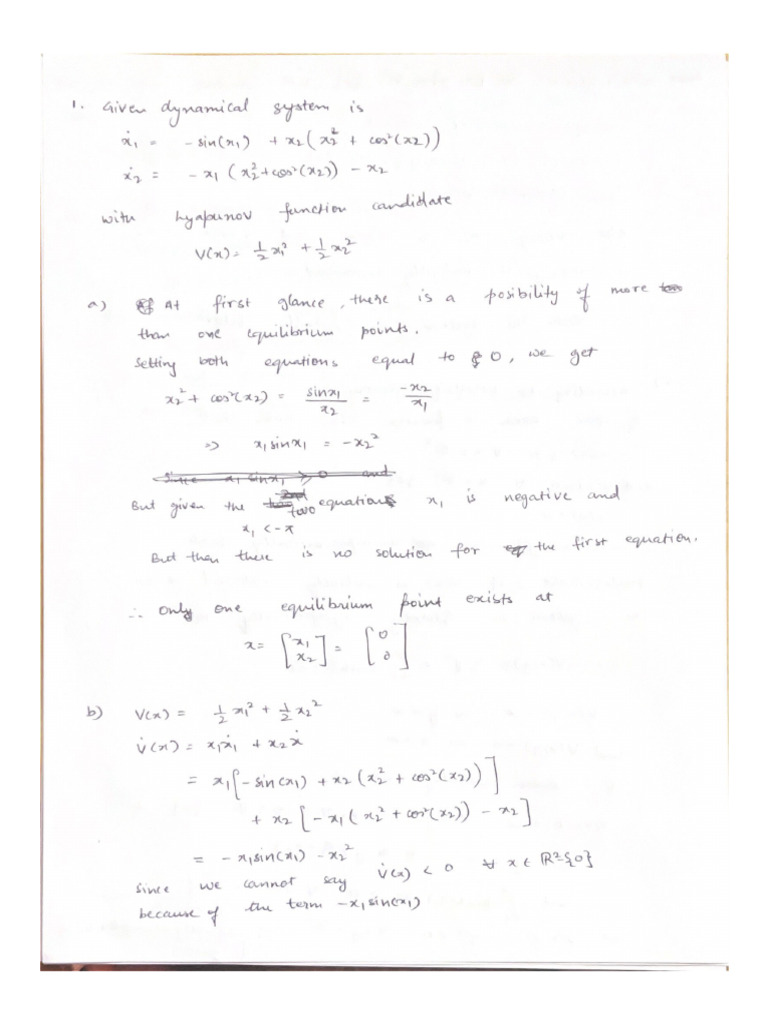 1. Given dynamical system is
ẋ₁ = - sin(x₁) + x₂(x₂² + cos²(x₂))
ẋ₂ = - x₁ (x₂² + cos²(x₂)) - x₂
with Lyapunov function candidate
V(x) = ½ x₁² + ½ x₂²
a) At first glance, there is a posibility of more
than one equilibrium points.
Setting both equations equal to 0, we get
x₂² + cos²(x₂) = sinx₁/x₂ = -x₂/x₁
=> x₁ sinx₁ = -x₂²
Since x₁ sinx₁ > 0 and
But given the two equations x₁ is negative and
x₁ < -π
But than there is no solution for the first equation.
∴ Only one equilibrium point exists at
x = [x₁ x₂] = [0 0]
b) V(x) = ½ x₁² + ½ x₂²
V̇(x) = x₁ẋ₁ + x₂ẋ
= x₁[-sin(x₁) + x₂(x₂² + cos²(x₂))]
+ x₂[-x₁(x₂² + cos²(x₂)) - x₂]
= - x₁sin(x₁) - x₂²
since we cannot say V̇(x) < 0 ∀ x ∈ ℝ²{0}
because of the term -x₁sin(x₁)